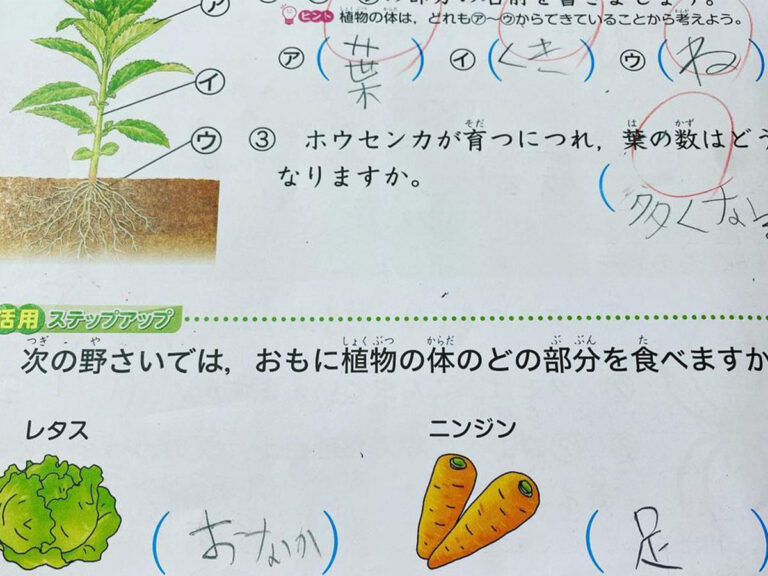 ヒント 植物の体は，どれも㋐～㋒からできていることから考えよう。
㋐(葉) ㋑(くき) ㋒(ね)
㋑
㋒
③ ホウセンカが育つにつれ，葉の数はどう
なりますか。
(多くなる
活用 ステップアップ
次の野さいでは，おもに植物の体のどの部分を食べますか
レタス ニンジン
(おなか) (足)